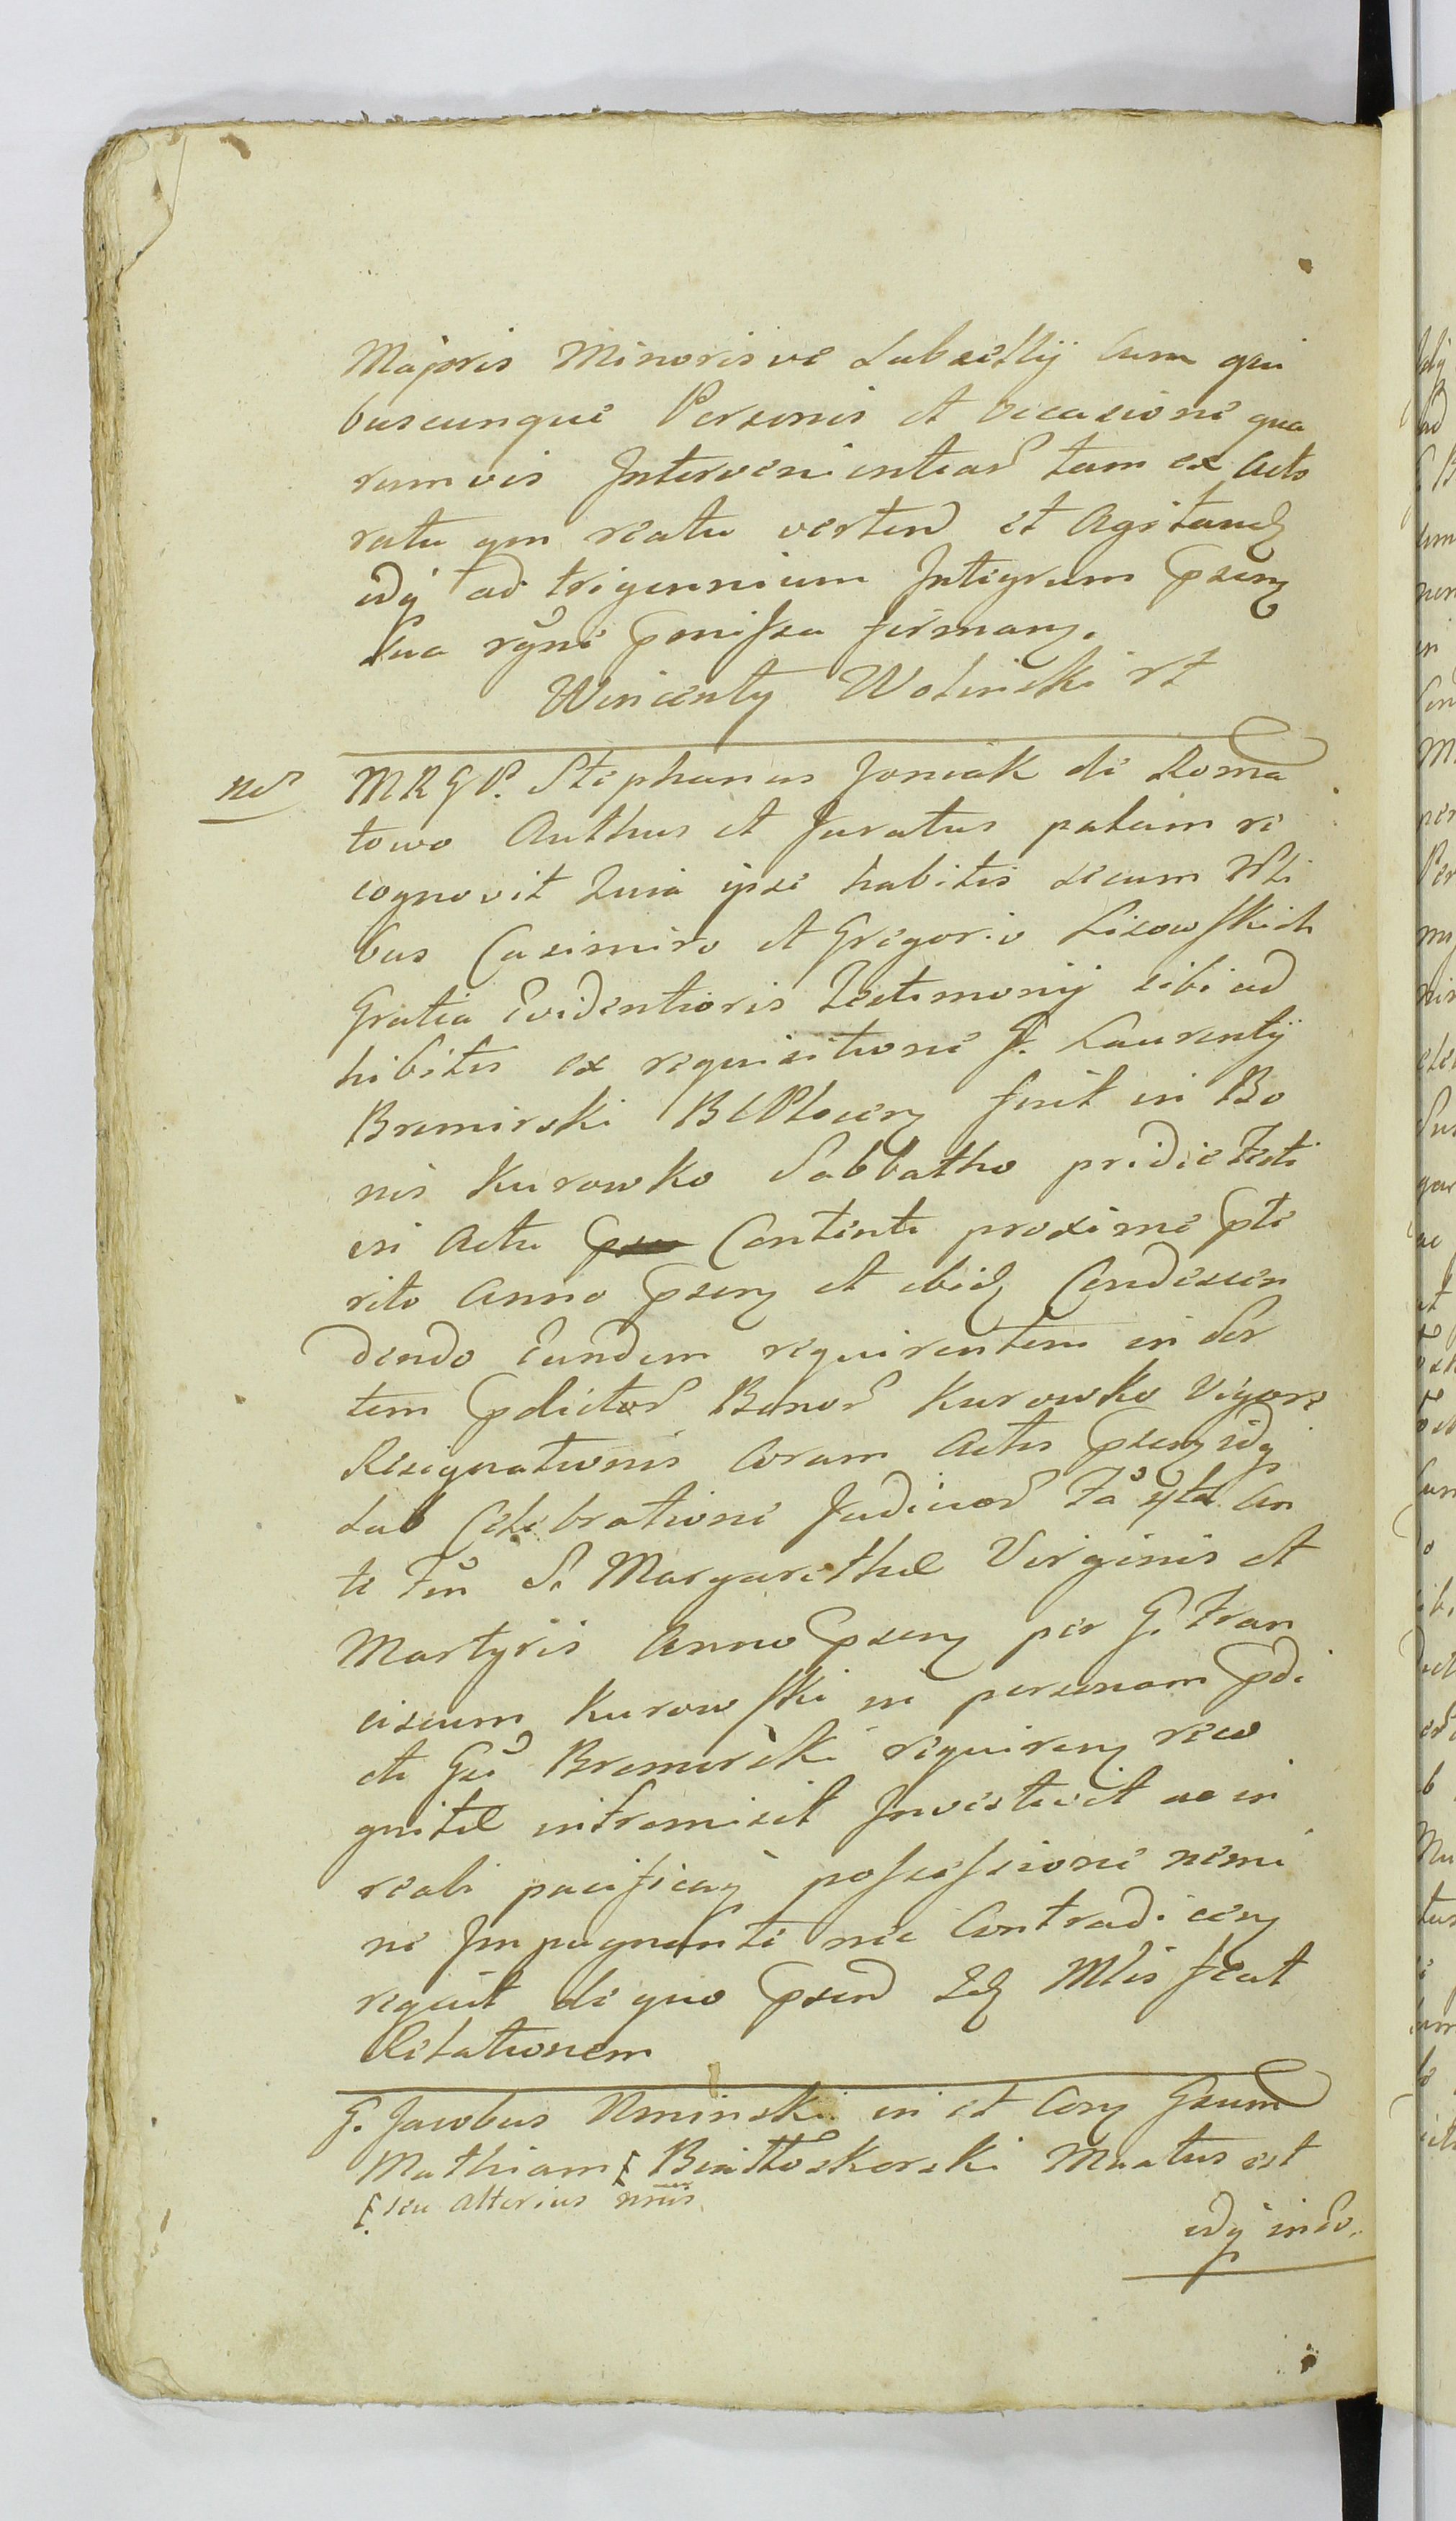 Majoris Minorisve Subsellij Cum qui
buscunque Personis et occasione qua
rumvis Intervenientiaꝝ tam ex acto
ratu qm reatu verteñ et Agitandꝫ
idq ad trigennium Integrum psenꝫ
sua rgne pmissa firmanꝫ.
Wincenty Wolinski rt
MRGP. Stephanus Joniak de Roma
towo Authus et Juratus palam re
cognovit Quia ipse habitis secum Nbli
bus Casimiro et Gregorio Lisowskich
Gratia Evidentioris Testimonij sibi ad
hibitis ex requisitione G. Laurentij
Bromirski BCPlocenꝫ fuit in Bo
nis Kurowko Sabbatho pridie Festi
in Actu Contenti proxime pte
rito Anno psenꝫ et ibidꝫ Condescen
dendo Eundem requirentem in Sor
tem pdictoꝝ Bonoꝝ Kurowko Vigore
Resignationis Coram Actis psenꝫ idq
sub Celebratione Judicioꝝ Fa An
te Fm S. Margarethæ Virginis et
Martyris Anno psenꝫ per G. Fran
ciscum Kurowski in personam pdi
cti Gsi Bromirski requirenꝫ reco
gnitæ intromisit Investivit ac in
reali pacificaq possessione nemi
ne Impugnante nec Contradicenꝫ
reqiuit de quo psenꝫ Idꝫ Mlis fecat
Rēlationem
G. Jacobus Uminski in et Conꝫ Gsum
Mathiam Białłoskorski Muatus est
seu alterius nmis
idq in so.